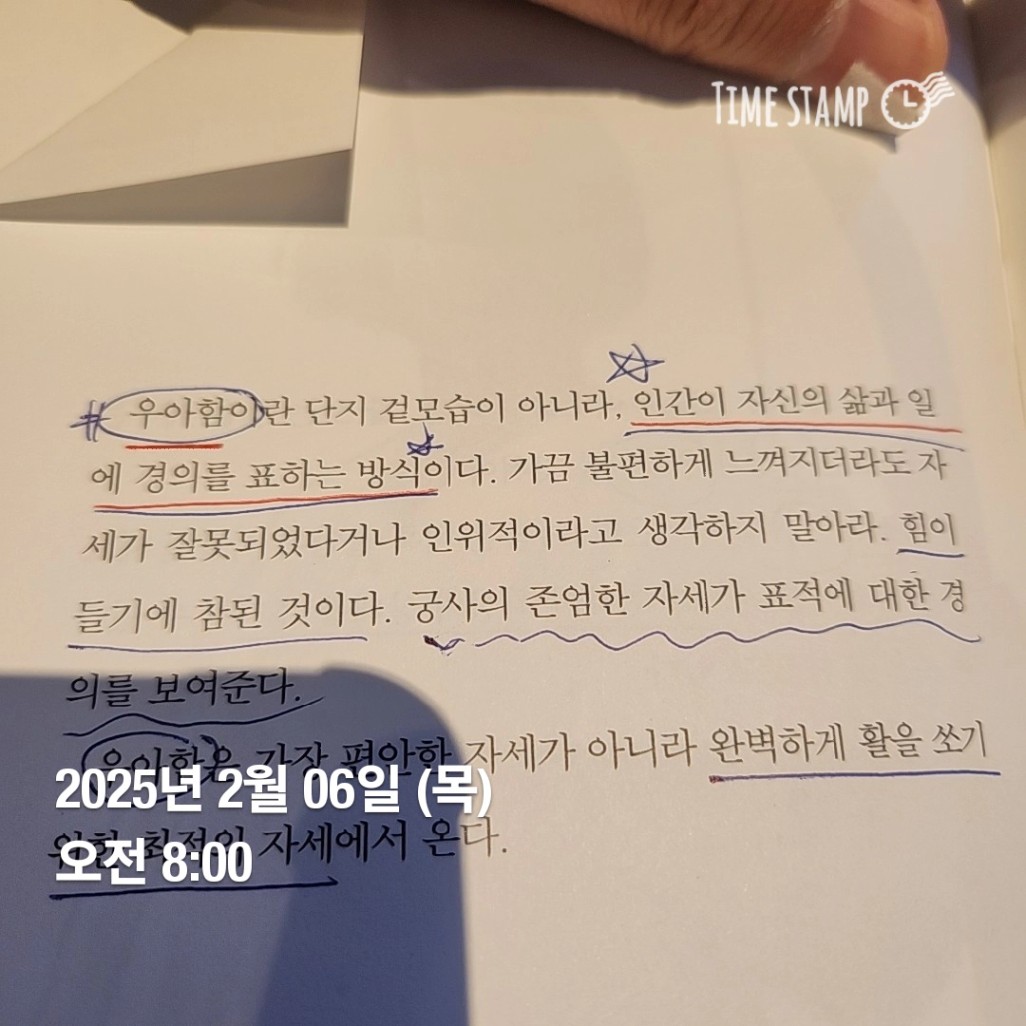 TIME STAMP
우아함이란 단지 겉모습이 아니라, 인간이 자신의 삶과 일
에 경의를 표하는 방식이다. 가끔 불편하게 느껴지더라도 자
세가 잘못되었다거나 인위적이라고 생각하지 말아라. 힘이
들기에 참된 것이다. 궁사의 존엄한 자세가 표적에 대한 경
의를 보여준다.
우아함은 가장 편안한 자세가 아니라 완벽하게 활을 쏘기
위한 최적의 자세에서 온다.
2025년 2월 06일 (목)
오전 8:00